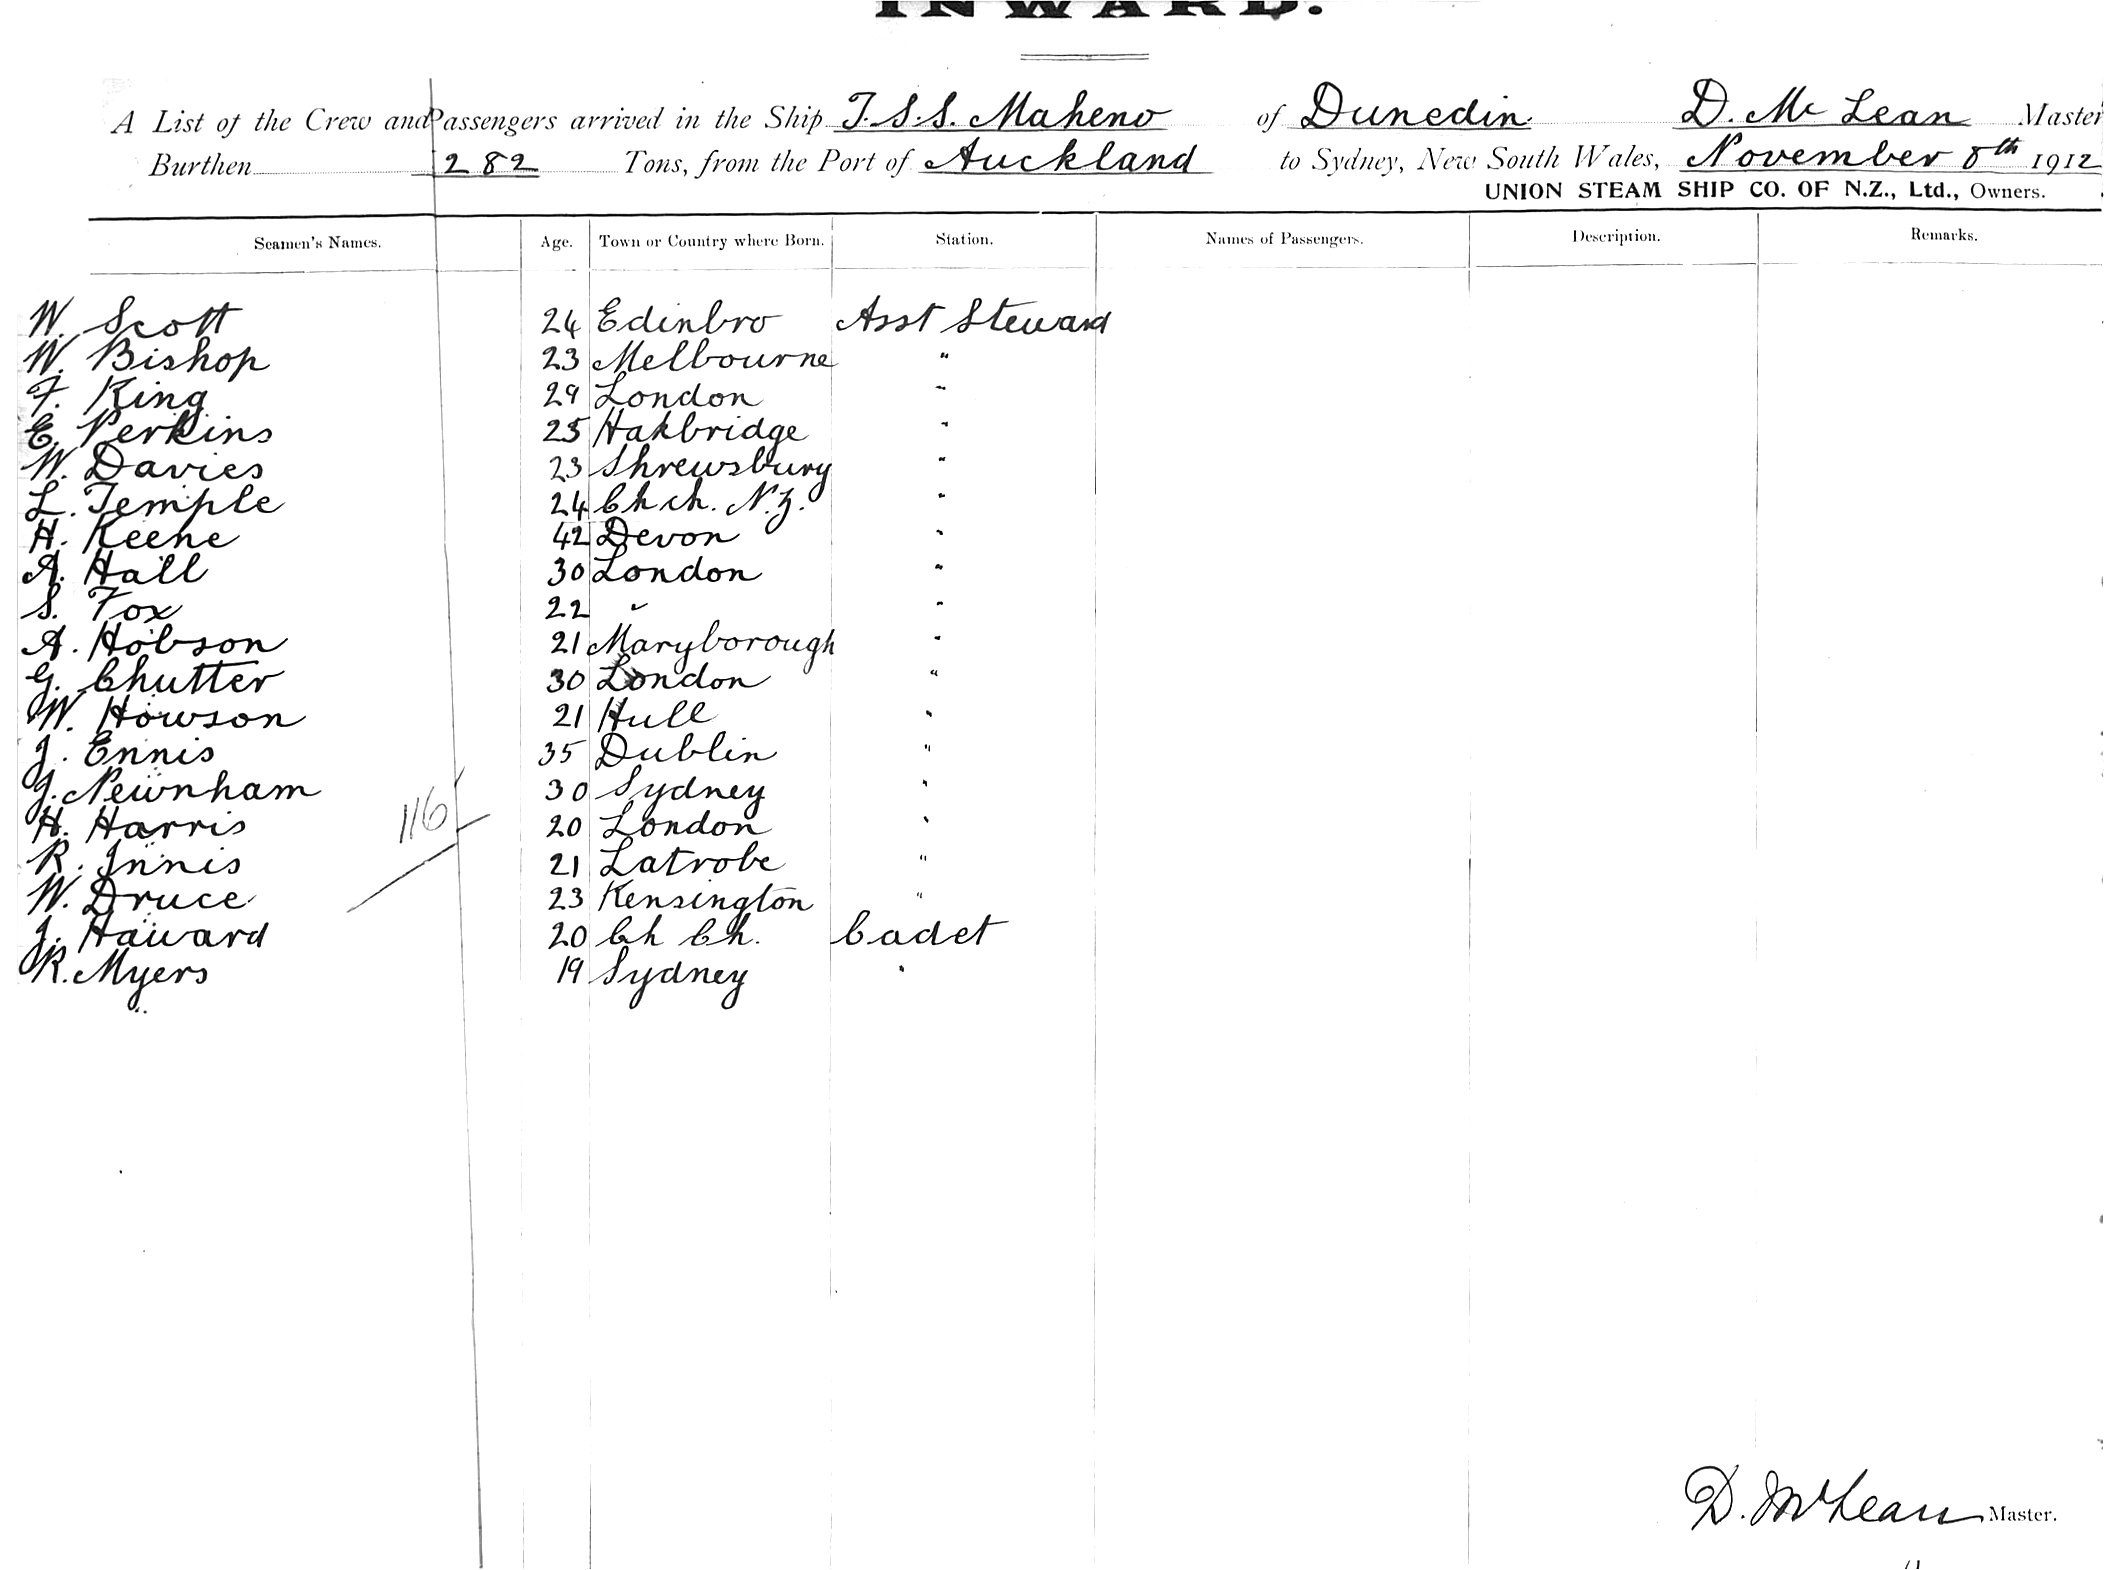 INWARD.
A List of the Crew and Passengers arrived in the Ship T.S.S. Maheno of Dunedin D. Mc Lean Master
Burthen 282 Tons, from the Port of Auckland to Sydney, New South Wales, November 8th 1912
UNION STEAM SHIP CO. OF N.Z., Ltd., Owners.
Seamen's Names. Age. Town or Country where Born. Station. Names of Passengers. Description. Remarks.
W. Scott 24 Edinbro Asst Steward
W. Bishop 23 Melbourne "
F. King 29 London "
E. Perkins 25 Hakbridge "
W. Davies 23 Shrewsbury "
L. Temple 24 Chch. N.Z. "
H. Keene 42 Devon "
A. Hall 30 London "
S. Fox 22 " "
A. Hobson 21 Maryborough "
G. Chutter 30 London "
W. Howson 21 Hull "
J. Ennis 35 Dublin "
J. Newnham 30 Sydney "
H. Harris 116 20 London "
R. Innis 21 Latrobe "
W. Druce 23 Kensington "
J. Haward 20 Ch Ch. Cadet
R. Myers 19 Sydney "
D. McLean Master.